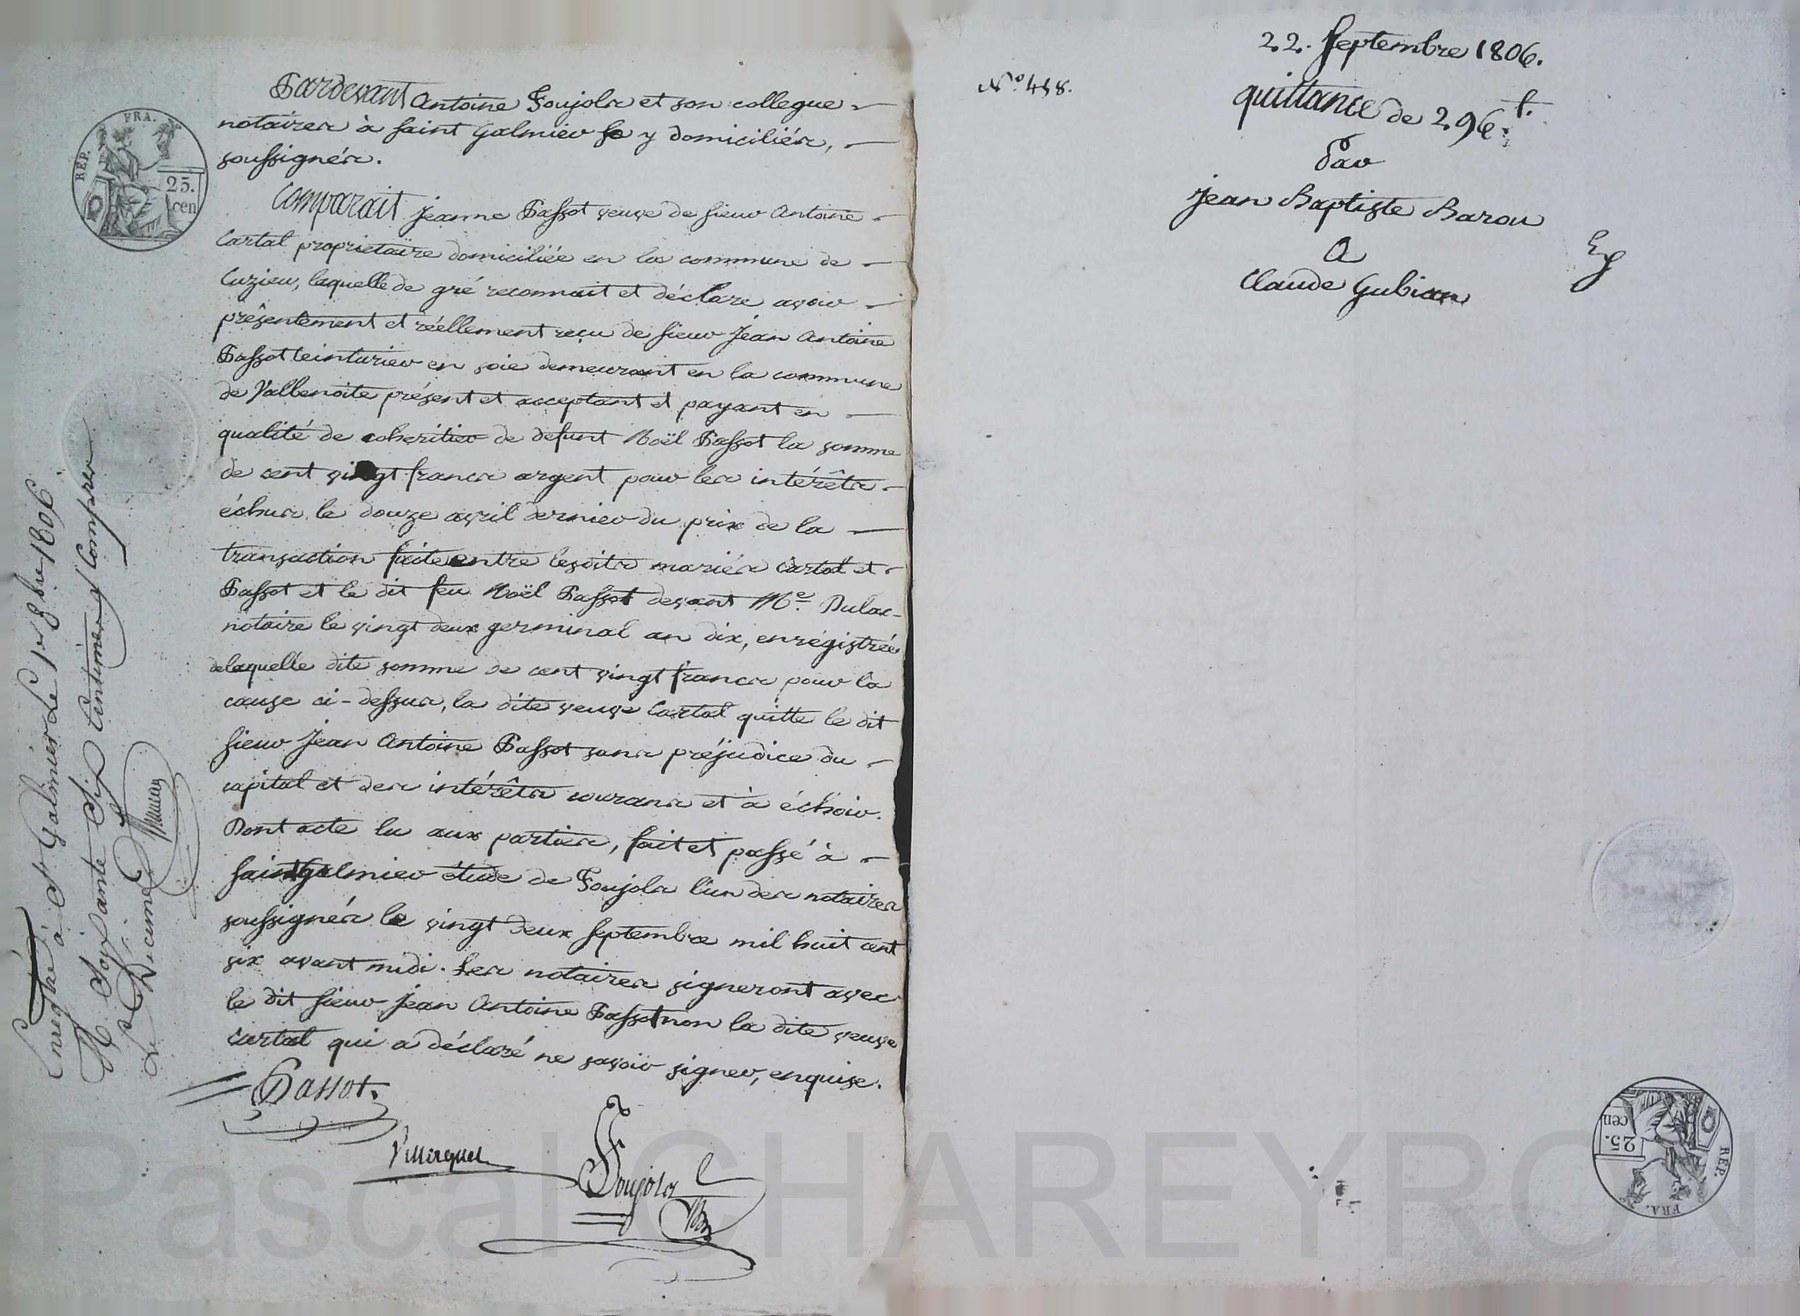 Pardevant Antoine Goujols et son collegue
notaires à Saint Galmier y domiciliés,
soussignés.
Comparait Jeanne Passot veuve de Sieur Antoine
Cartal propriétaire domiciliée en la commune de
Cuzieu, laquelle de gré reconnait et déclare avoir
présentement et réellement reçu de Sieur Jean Antoine
Passot teinturier en soie demeurant en la commune
de Valbenoite présent et acceptant et payant en
qualité de coheritier de defunt Noël Passot la somme
de cent vingt francs argent pour les intérêts
échus le douze avril dernier du prix de la
transaction faite entre lesdits mariés Cartal et
Passot et le dit feu Noël Passot devant Me. Dulac
notaire le vingt deux germinal an dix, enrégistrée
de laquelle dite somme de cent vingt francs pour la
cause ci-dessus, la dite veuve Cartal quitte le dit
Sieur Jean Antoine Passot sans préjudice du
capital et des intérêts courans et à échoir.
Dont acte lu aux parties, fait et passé à
Saint Galmier étude de Goujols l'un des notaires
soussignés le vingt deux Septembre mil huit cent
six avant midi. Les notaires signeront avec
le dit Sieur Jean Antoine Passot non la dite veuve
Cartal qui a déclaré ne savoir signer, enquise.
Passot.
Goujols
Enregtré à St Galmier le 1er 8bre 1806
Soixante Six Centimes y Compris
Le Decime
RÉP. FRA.
25.
cen
22. Septembre 1806.
No. 458.
quittance de 296 f.
Par
Jean Baptiste Barou
A
Claude Gubian
RÉP. FRA.
25.
cen
Pascal CHAREYRON